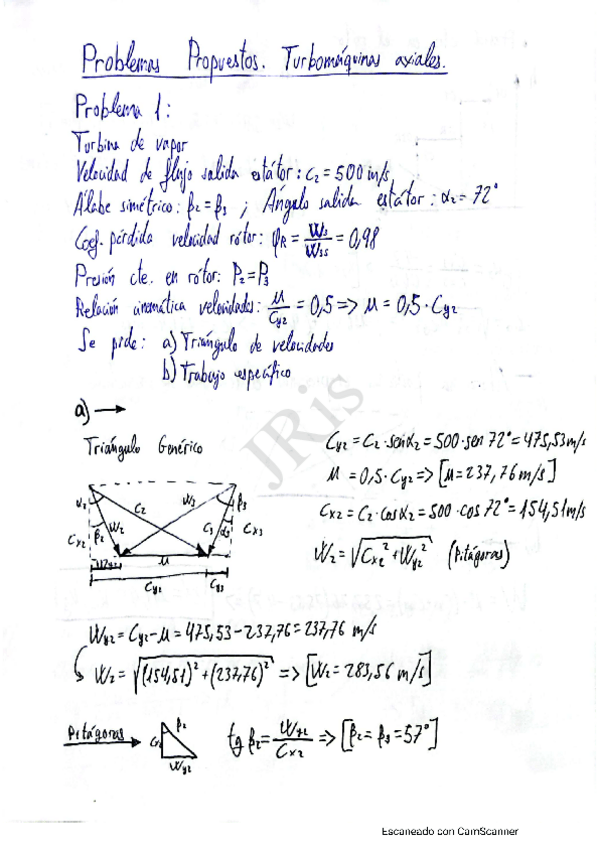 Problemas Propuestos. Turbomáquinas axiales.
Problema 1:
Turbina de vapor
Velocidad de flujo salida estátor: C2 = 500 m/s
Álabe simétrico: β2 = β3 ; Ángulo salida estátor: α2 = 72°
Coef. pérdida velocidad rótor: φR = W3/W3s = 0,98
Presión cte. en rótor: P2 = P3
Relación cinemática velocidades: μ/Cy2 = 0,5 => μ = 0,5 · Cy2
Se pide: a) Triángulo de velocidades
b) Trabajo específico
a) →
Triángulo Genérico
Cy2 = C2 · sen α2 = 500 · sen 72° = 475,53 m/s
μ = 0,5 · Cy2 => [μ = 237,76 m/s]
Cx2 = C2 · cos α2 = 500 · cos 72° = 154,51 m/s
W2 = √(Cx2² + Wy2²) (Pitágoras)
α2 β2 W2 C2 W3 C3 α3 β3
Cx2 Cx3
Wy2 μ
Cy2 Cy3
Wy2 = Cy2 - μ = 475,53 - 237,76 = 237,76 m/s
W2 = √((154,51)² + (237,76)²) => [W2 = 283,56 m/s]
Pitágoras → Cx β2 Wy2 tg β2 = Wy2/Cx2 => [β2 = β3 = 57°]
JRis
Escaneado con CamScanner